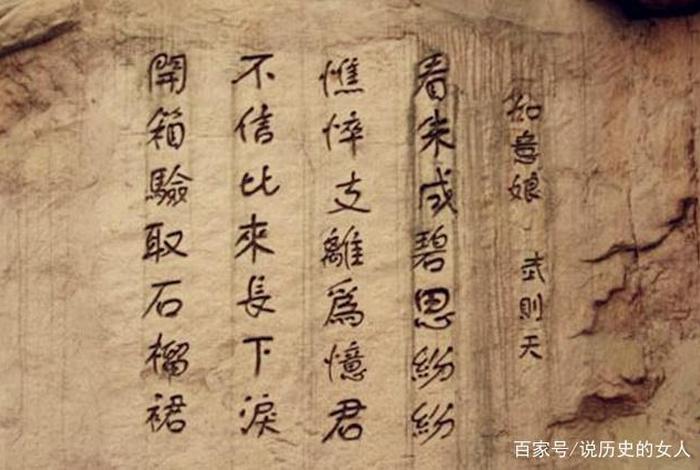 如意娘 武則天
看朱成碧思紛紛
憔悴支離為憶君
不信比來長下淚
開箱驗取石榴裙
百家号/说历史的女人